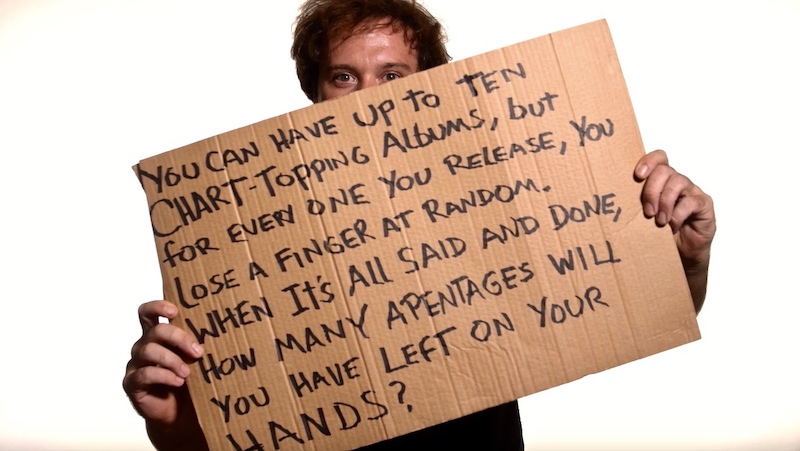 YOU CAN HAVE UP TO TEN
CHART-TOPPING AlBUMS, bUT
FOR EVERY ONE YOU RELEASE, YOU
LOSE A FINGER AT RANDOM.
WHEN IT'S All SAID AND DONE,
HOW MANY APENTAGES WILL
YOU HAVE LEFT ON YOUR
HANDS?